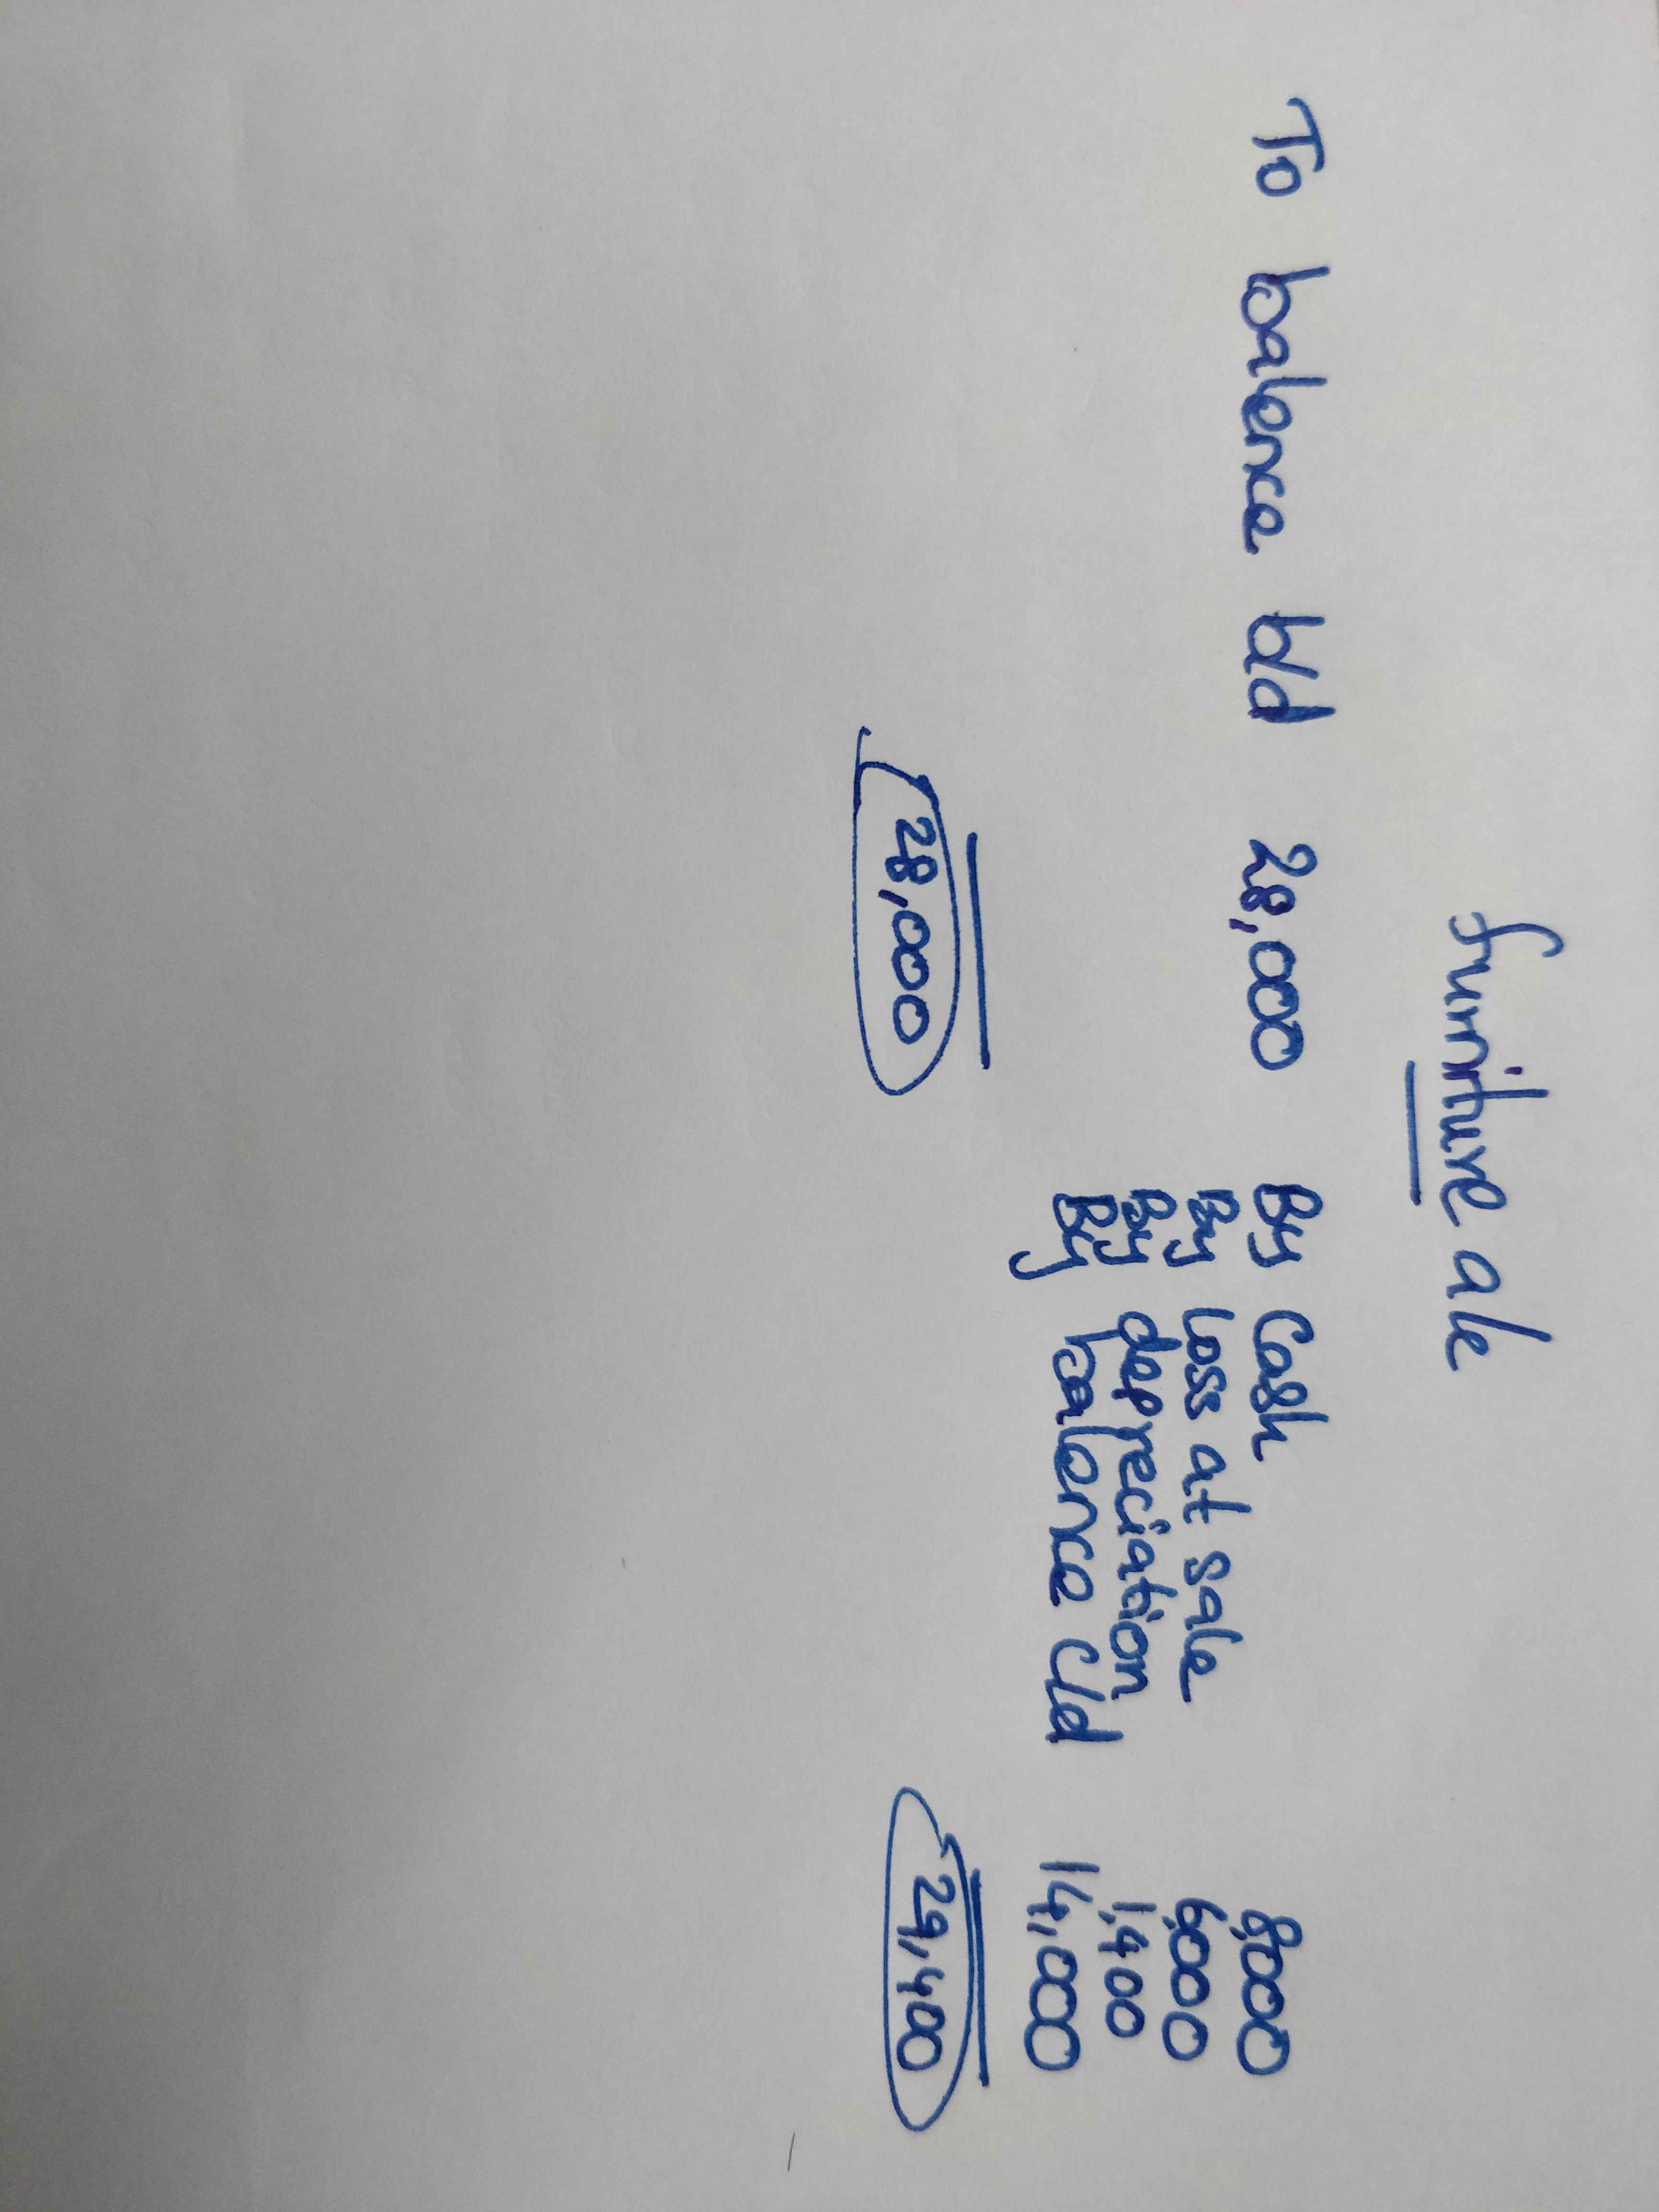 furniture a/c
To balence b/d 28,000 By Cash 8,000
By Loss at sale 6,000
By depreciation 1,400
By balence c/d 14,000
28,000 29,400